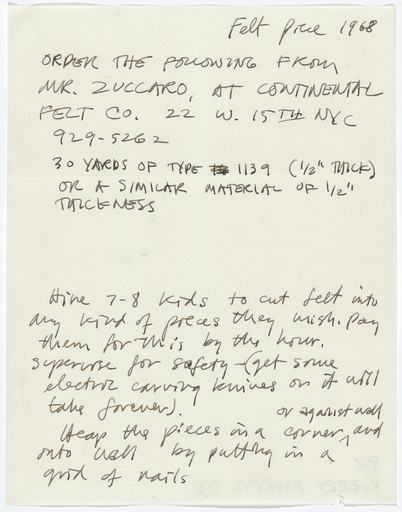 Felt piece 1968
ORDER THE FOLLOWING FROM
MR. ZUCCARO, AT CONTINENTAL
FELT CO. 22 W. 15TH NYC
929-5262
30 YARDS OF TYPE # 1139 (1/2" THICK)
OR A SIMILAR MATERIAL OF 1/2"
THICKNESS
Hire 7-8 kids to cut felt into
any kind of pieces they wish. Pay
them for this by the hour.
Supervise for safety - (get some
electric carving knives or it will
take forever).
or against wall
Heap the pieces in a corner, and
onto wall by putting in a
grid of nails
BY
ROBERT MORRIS